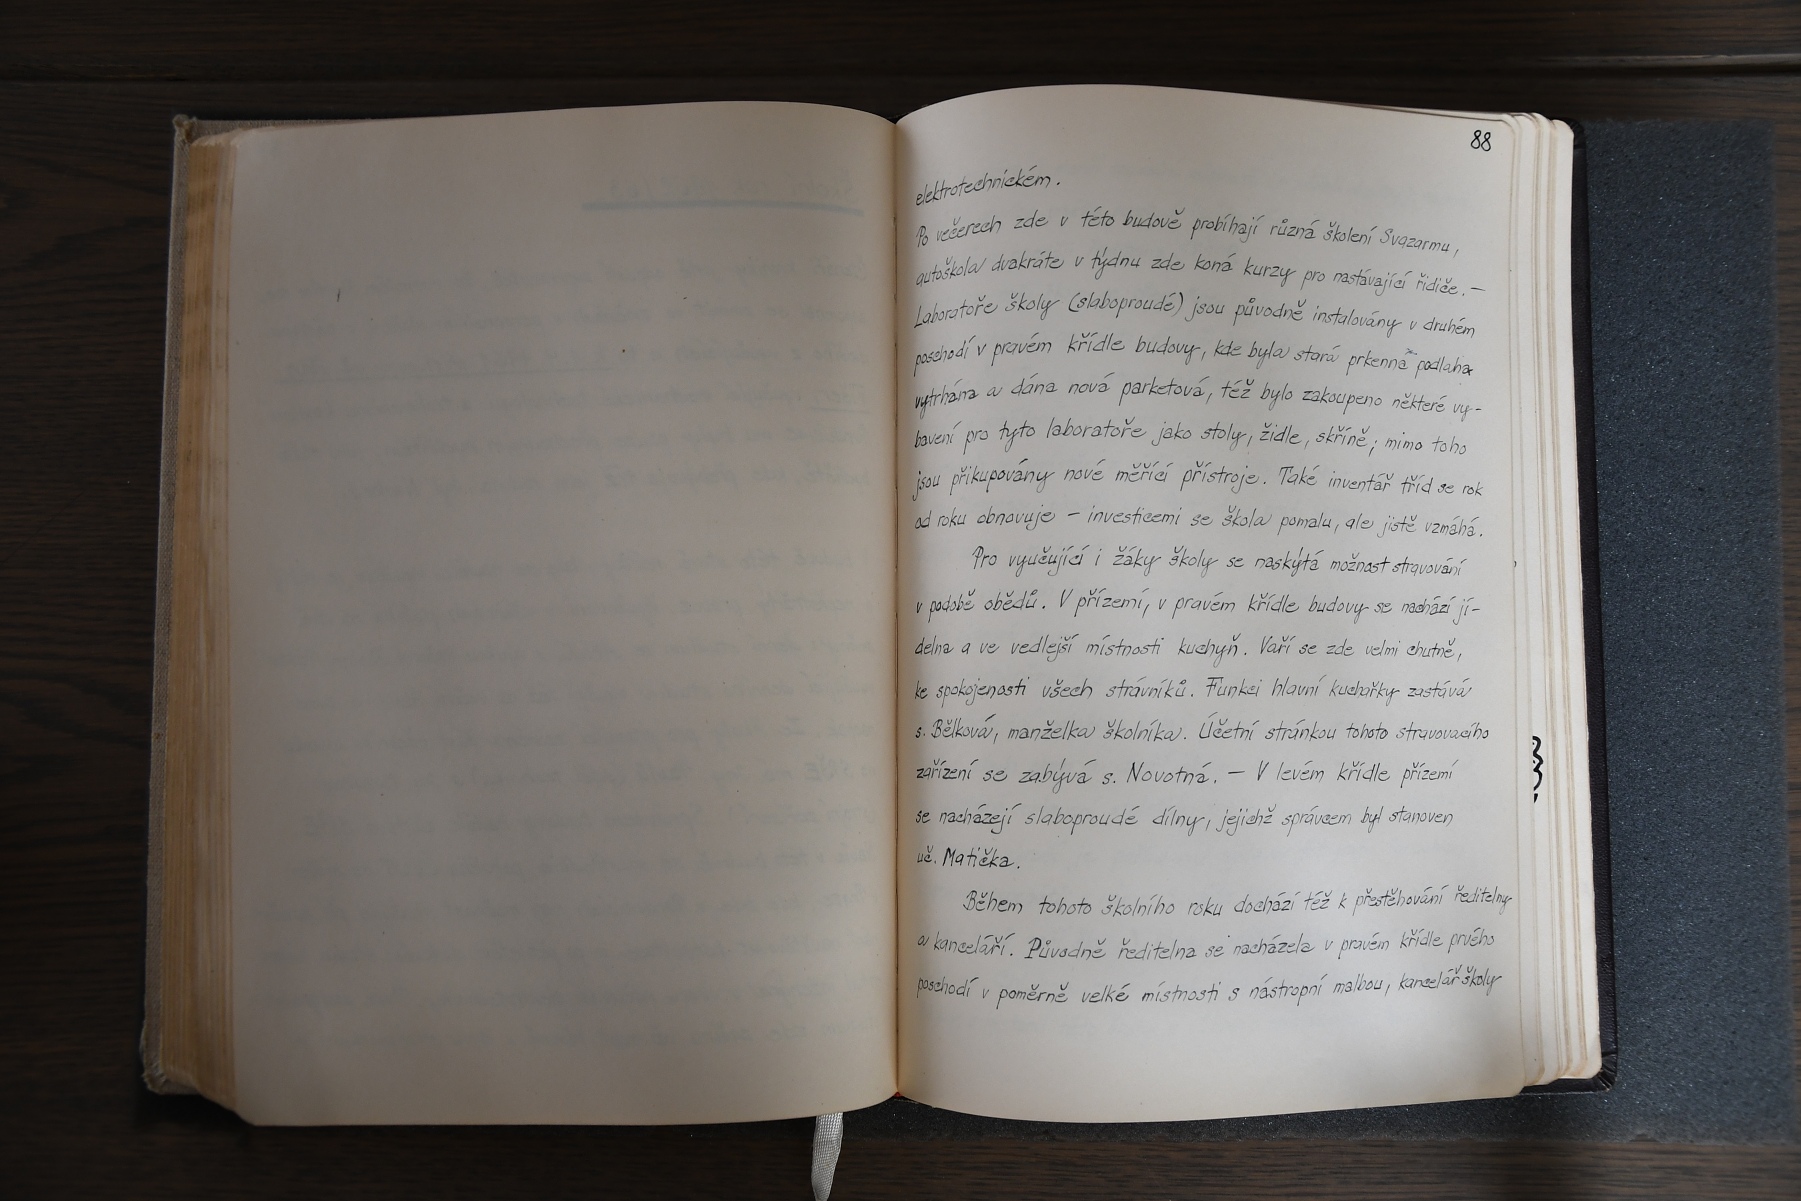 88
elektrotechnickém.
Po večerech zde v této budově probíhají různá školení Svazarmu,
autoškola dvakráte v týdnu zde koná kurzy pro nastávající řidiče. —
Laboratoře školy (slaboproudé) jsou původně instalovány v druhém
poschodí v pravém křídle budovy, kde byla stará prkenná podlaha
vytrhána a dána nová parketová, též bylo zakoupeno některé vy-
bavení pro tyto laboratoře jako stoly, židle, skříně; mimo toho
jsou přikupovány nové měřící přístroje. Také inventář tříd se rok
od roku obnovuje – investicemi se škola pomalu, ale jistě vzmáhá.
Pro vyučující i žáky školy se naskýtá možnost stravování
v podobě obědů. V přízemí, v pravém křídle budovy se nachází jí-
delna a ve vedlejší místnosti kuchyň. Vaří se zde velmi chutně,
ke spokojenosti všech strávníků. Funkci hlavní kuchařky zastává
s. Bělková, manželka školníka. Účetní stránkou tohoto stravovacího
zařízení se zabývá s. Novotná. — V levém křídle přízemí
se nacházejí slaboproudé dílny, jejichž správcem byl stanoven
uč. Matička.
Během tohoto školního roku dochází též k přestěhování ředitelny
a kanceláří. Původně ředitelna se nacházela v pravém křídle prvého
poschodí v poměrně velké místnosti s nástropní malbou, kancelář školy